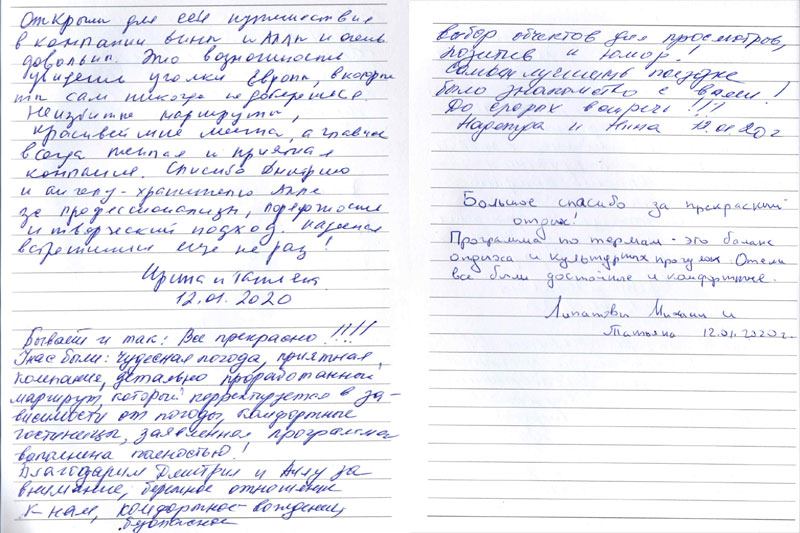 Открыли для себя путешествия
в компании и Аллы и очень
довольны. Это возможность
увидеть уголки Европы, в которые
ты сам никогда не доберешься.
Неизбитые маршруты,
красивейшие места, а главное
всегда теплая и приятная
компания. Спасибо Дмитрию
и ангелу-хранителю Алле
за профессионализм,
и творческий подход. Надеемся
встретимся еще не раз!
Ирина и
12.01.2020
Бывает и так: Все прекрасно!!!!
У нас были: чудесная погода, приятная
компания, детально проработанный
маршрут, который корректируется в за-
висимости от погоды, комфортные
гостиницы, заявленная программа
выполнена полностью!
Благодарим Дмитрия и Аллу за
внимание, бережное отношение
к нам, комфортное вождение,
безопасное
выбор объектов для просмотров,
позитив и юмор!
Самым лучшим в поездке
было знакомство с Вами!
До скорых встреч!!!
и Нина 12.01.20 г
Большое спасибо за прекрасный
отдых!
Программа по термам - это баланс
отдыха и культурных прогулок. Отели
все были достойные и комфортные.
Липатовы Михаил и
Татьяна 12.01.2020 г.